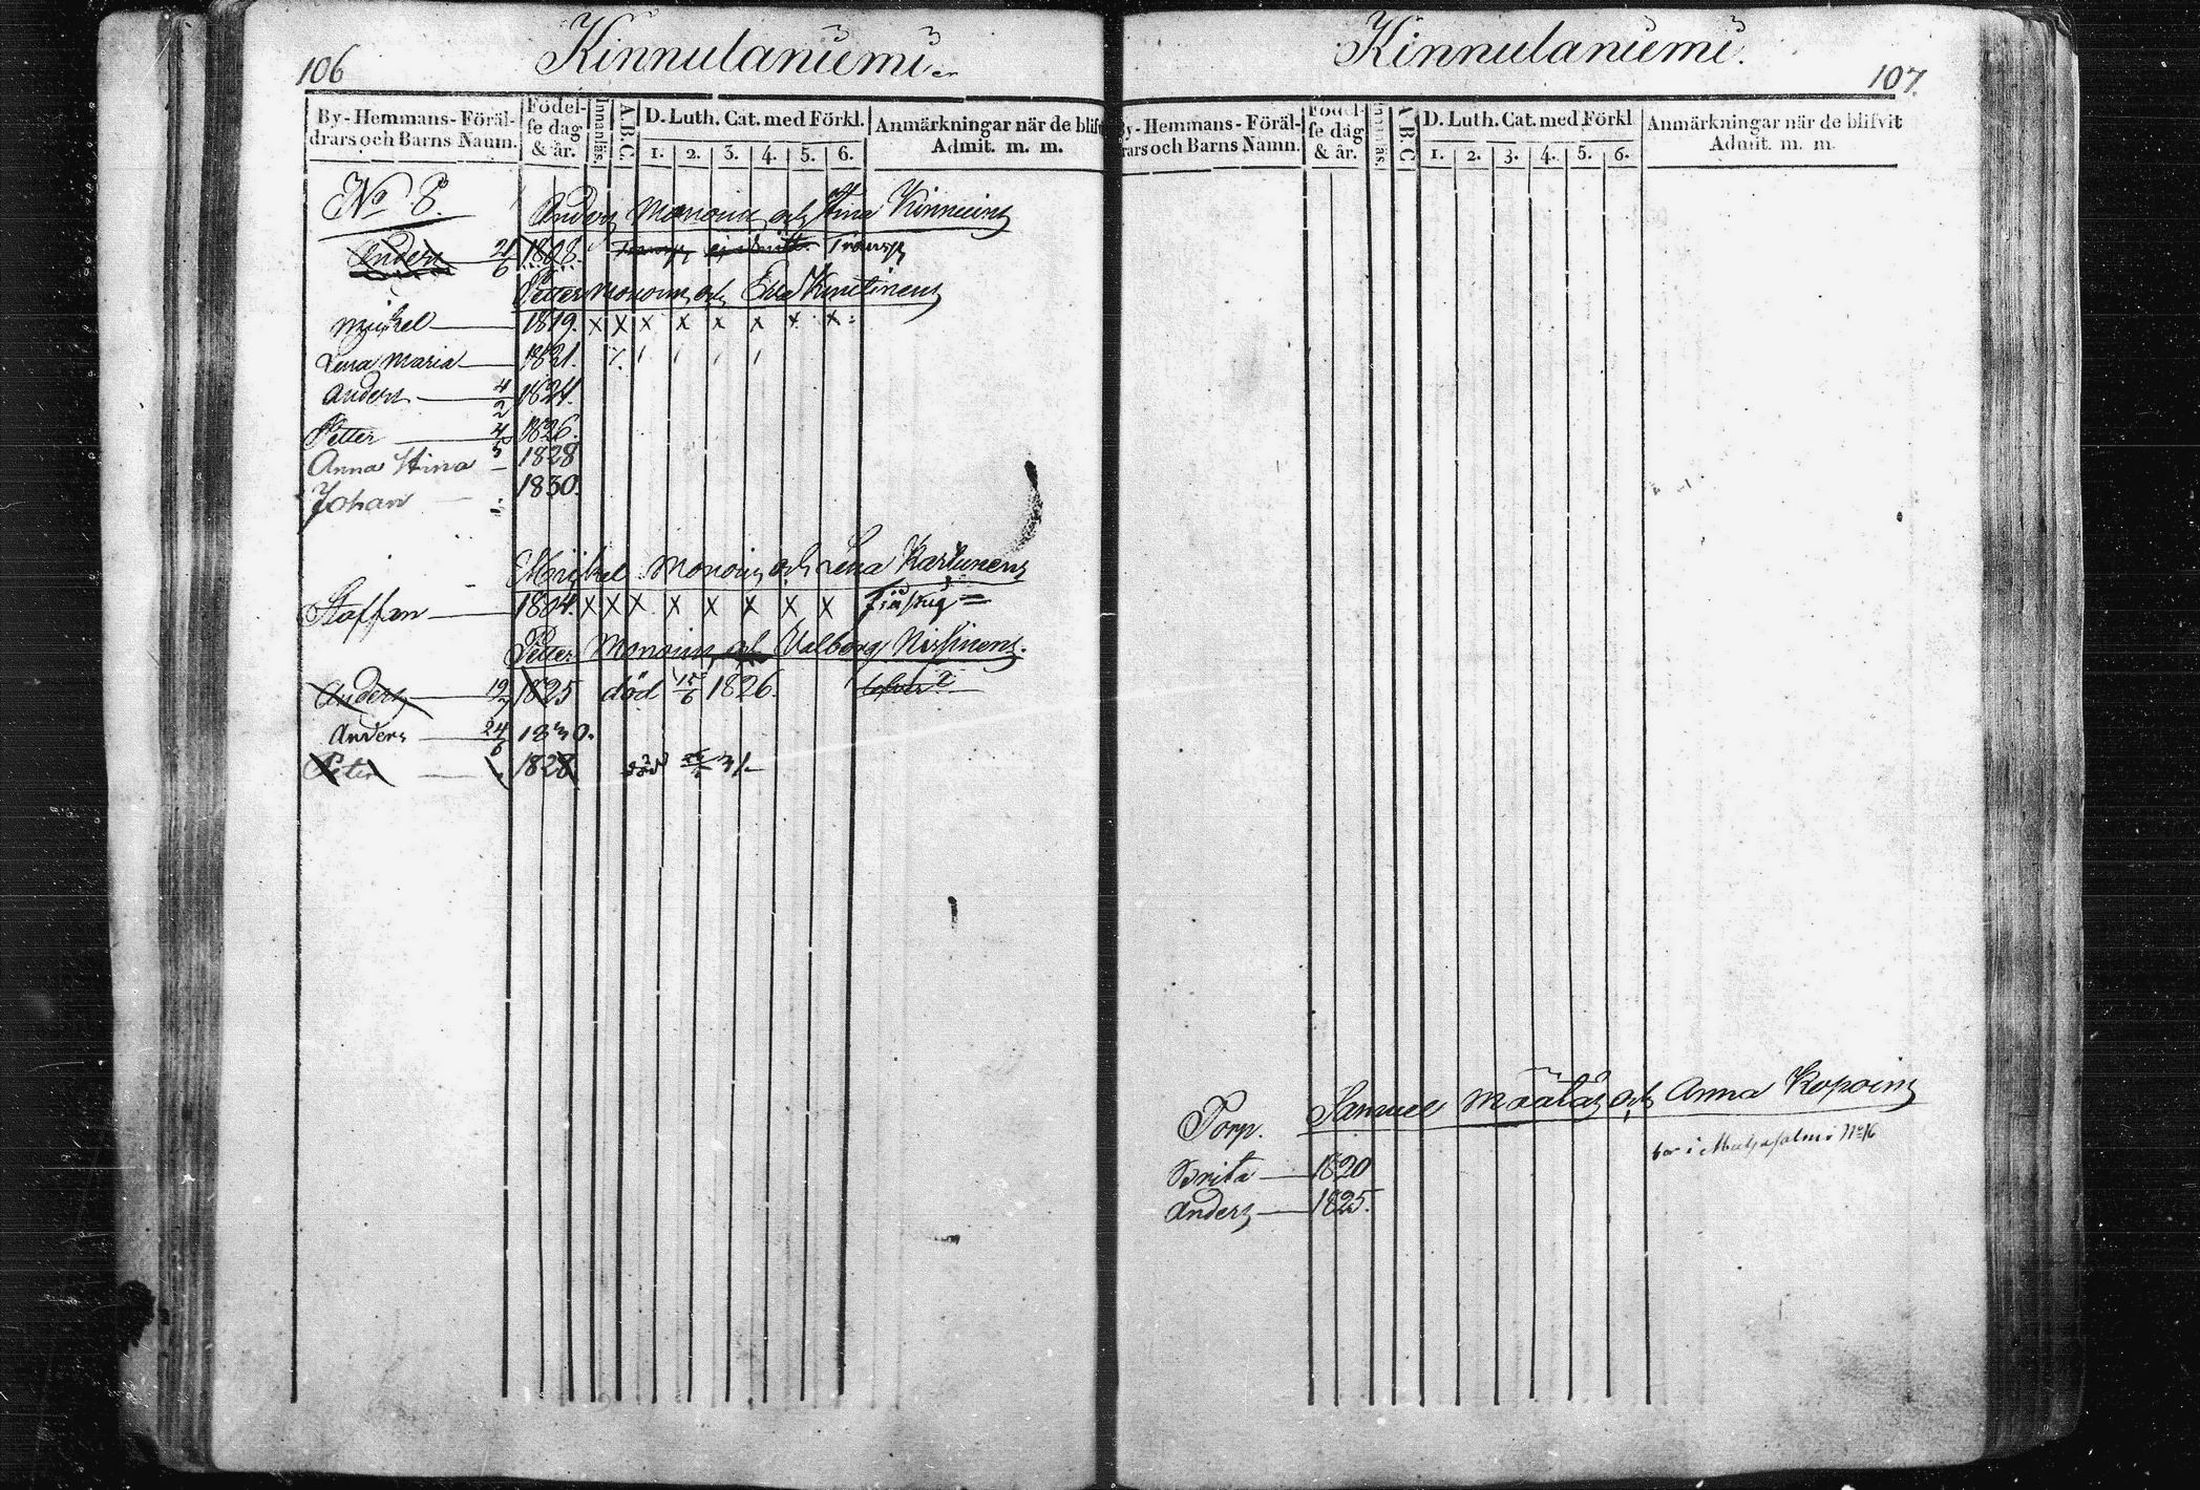 106
Kinnulaniemi
By-Hemmans-Föräl-
drars och Barns Namn.
Födel-
se dag
& år.
Innanläs.
A.B.C.
D. Luth. Cat. med Förkl.
1. 2. 3. 4. 5. 6.
Anmärkningar när de blifv
Admit. m. m.
No 8.
Anders Mononen och Stina Kinnuins
Anders 21/6 1808. Transp
Petter Mononen och Eva
Mickel 1819. x x x x x x x x
Lena Maria 1821.
Anders 4/2 1824.
Petter 4/5 1826.
Anna Stina 1828
Johan 1830.
Michel Mononen och Lena Kartunens
Staffan 1804. x x x x x x x x
Petter Mononen och Valborg Niskinens.
Anders 19/7 1825 död 15/6 1826.
Anders 24/6 1830.
Peter 1828 död 31
Kinnulaniemi.
107.
By-Hemmans-Föräl-
drars och Barns Namn.
Födel-
se dag
& år.
Innanläs.
A.B.C
D. Luth. Cat. med Förkl
1. 2. 3. 4. 5. 6.
Anmärkningar när de blifvit
Admit. m. m.
Torp. Samuel Määtäs och Anna Kopoins
bor i No 16
Brita 1820
Anders 1825.